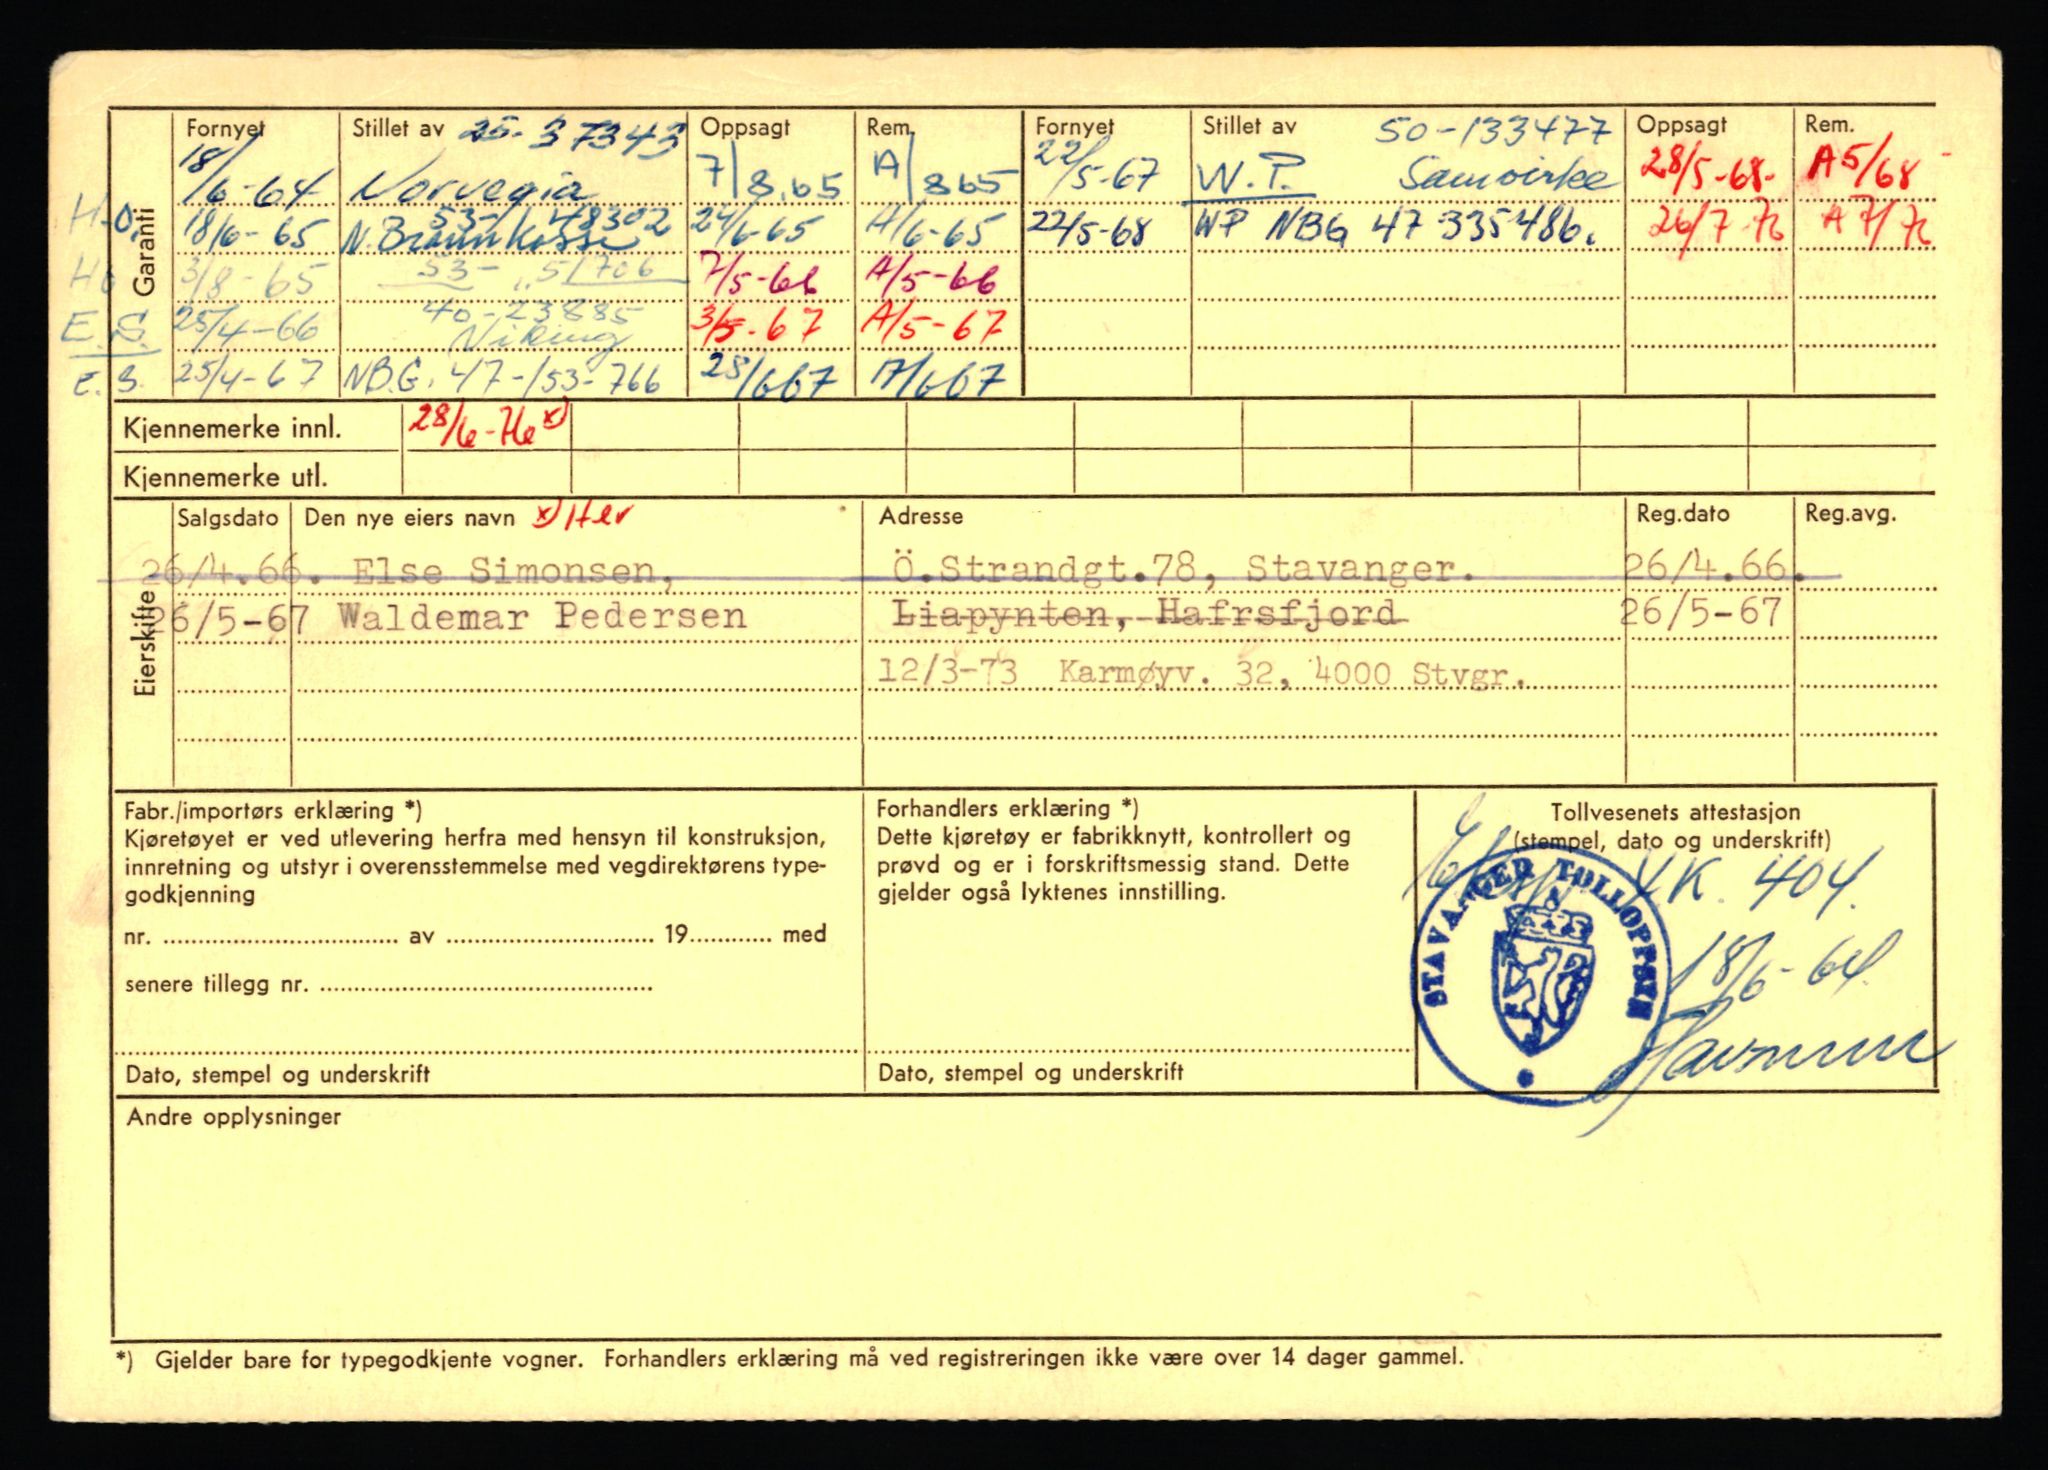 Garanti
Fornyet Stillet av 25-37343 Oppsagt Rem. Fornyet Stillet av 50-133477 Oppsagt Rem.
18/6-64 Norvegia 7/8.65 A/865 22/5-67 W.P. Samvirke 28/5-68- A5/68
H.O. 18/6-65 N.Brannkasse 53-148302 24/6-65 A/6-65 22/5-68 WP NBG 47 335486. 26/7-76 A 7/76
Ho 3/8-65 53- „ 51706 7/5-66 A/5-66
E.S. 25/4-66 40-23885 Viking 3/5-67 A/5-67
E.S. 25/4-67 NB.G. 47-153-766 28/667 A/667
Kjennemerke innl. 28/6-76 x)
Kjennemerke utl.
Eierskifte
Salgsdato Den nye eiers navn x) Her Adresse Reg.dato Reg.avg.
26/4.66. Else Simonsen, Ö.Strandgt.78, Stavanger. 26/4.66.
26/5-67 Waldemar Pedersen Liapynten, Hafrsfjord 26/5-67
12/3-73 Karmøyv. 32, 4000 Stvgr.
Fabr./importørs erklæring *)
Kjøretøyet er ved utlevering herfra med hensyn til konstruksjon,
innretning og utstyr i overensstemmelse med vegdirektørens type-
godkjenning
nr. .................... av .................... 19............ med
senere tillegg nr. ....................
Dato, stempel og underskrift
Forhandlers erklæring *)
Dette kjøretøy er fabrikknytt, kontrollert og
prøvd og er i forskriftsmessig stand. Dette
gjelder også lyktenes innstilling.
Dato, stempel og underskrift
Tollvesenets attestasjon
(stempel, dato og underskrift)
K. 404.
STAVANGER TOLLOPPSYN
18/6-64.
Andre opplysninger
*) Gjelder bare for typegodkjente vogner. Forhandlers erklæring må ved registreringen ikke være over 14 dager gammel.